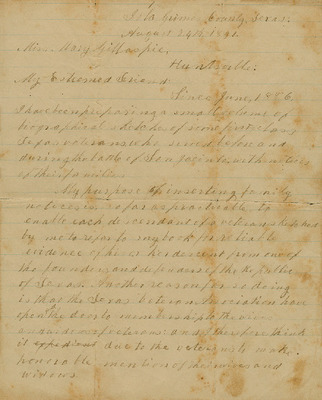 County, Texas.
August 24th, 1891.
Miss Mary Gillaspie,
Huntsville:
My Esteemed Friend
Since June, 1886,
I have been preparing a small volume of
biographical sketches of some first class
Texas veterans who served before and
during the battle of San Jacinto, with notices
of their families.
My purpose of inserting family
notices is so far as practicable to
enable each descendant of a veteran sketched
by me to refer to my book for reliable
evidence of his or her descent from one of
the founders and defenders of the Republic
of Texas. Another reason for so doing
is that the Texas Veteran Association have
open the door to membership to the
and widows of veterans and I therefore think
it expedient due to the veterans to make
honorable mention of their wives and
widows